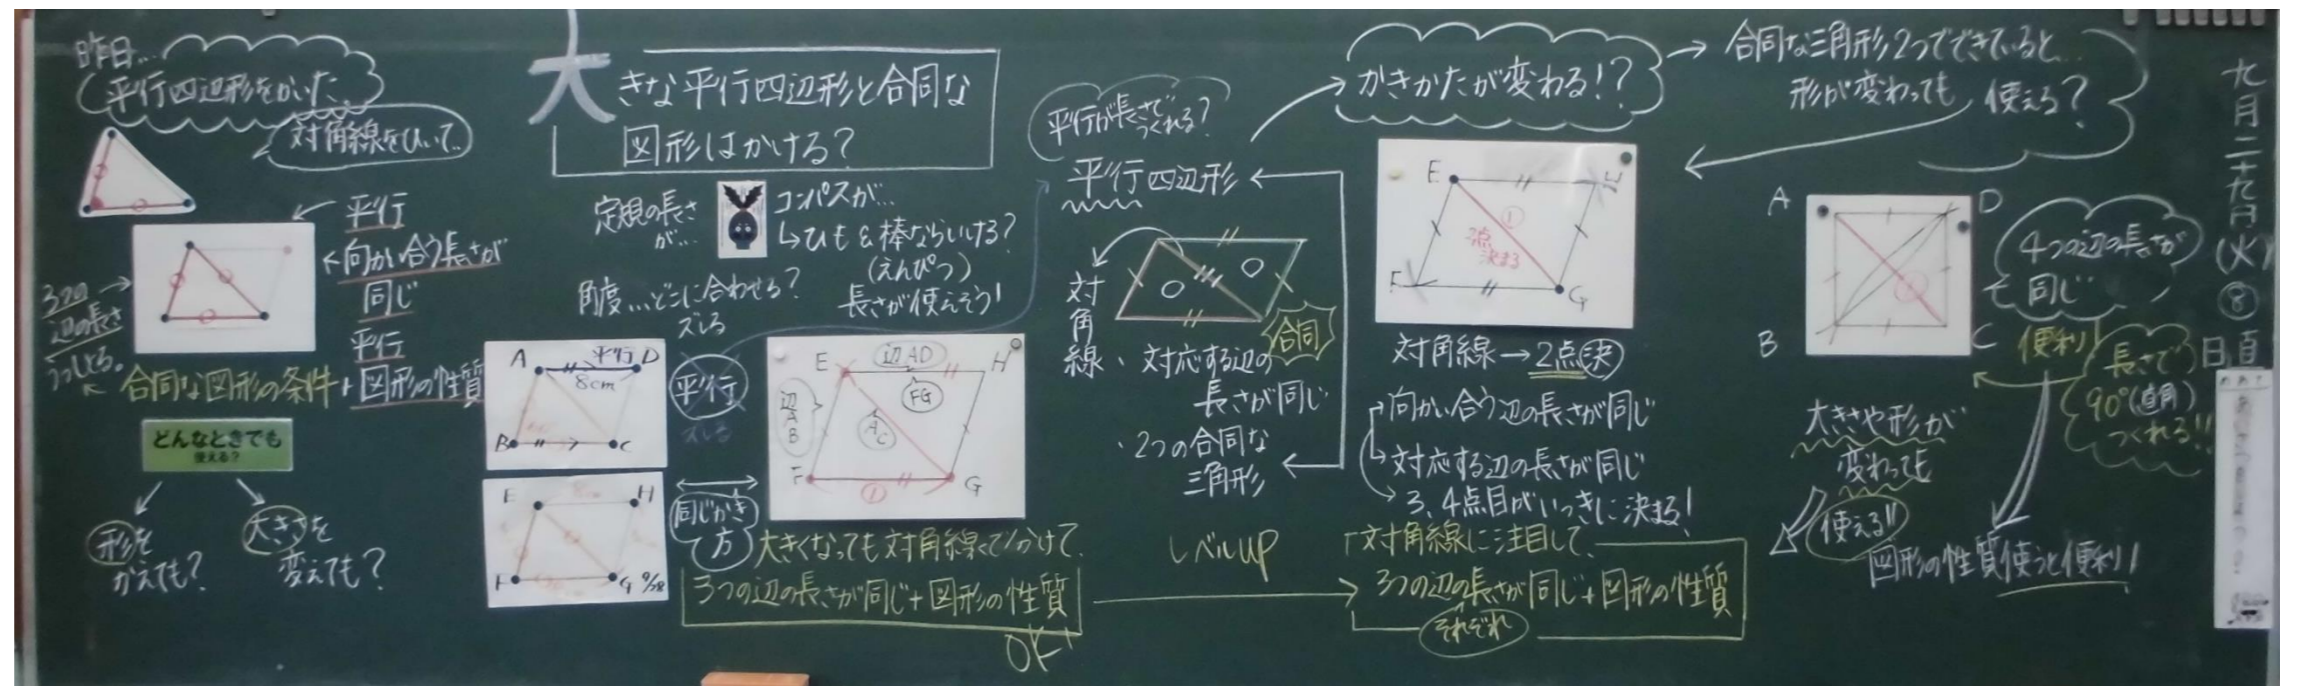 昨日…
平行四辺形をかいた
対角線をひいて…
平行
向かい合う長さが
同じ
平行
3つの
辺の長さ
うつしとる。
合同な図形の条件+図形の性質
どんなときでも
使える?
形を
かえても?
大きさを
変えても?
大きな平行四辺形と合同な
図形はかける?
定規の長さ
が…
コンパスが…
ひも&棒ならいける?
(えんぴつ)
長さが使えそう!
角度…どこに合わせる?
ズレる
A 平行 D
8cm
B C
平行
ズレる
E H
F G 9/28
同じかき
方
E 辺AD H
FG
辺AB
AC
F ① G
大きくなっても対角線でわけて、
3つの辺の長さが同じ+図形の性質
OK!
平行が長さで
つくれる?
平行四辺形
対角線
合同
・対応する辺の
長さが同じ
・2つの合同な
三角形
レベルUP
かきかたが変わる!?
合同な三角形2つでできていると…
形が変わっても 使える?
E H
①
2点
決まる
F G
対角線→2点決
向かい合う辺の長さが同じ
対応する辺の長さが同じ
3、4点目がいっきに決まる!
対角線に注目して、
3つの辺の長さが同じ+図形の性質
それぞれ
A D
B C
4つの辺の長さが
同じ
便利
長さで
90°(直角)
つくれる!!
大きさや形が
変わっても
使える!!
図形の性質使うと便利!
九月二十九日(火)
⑧
日直